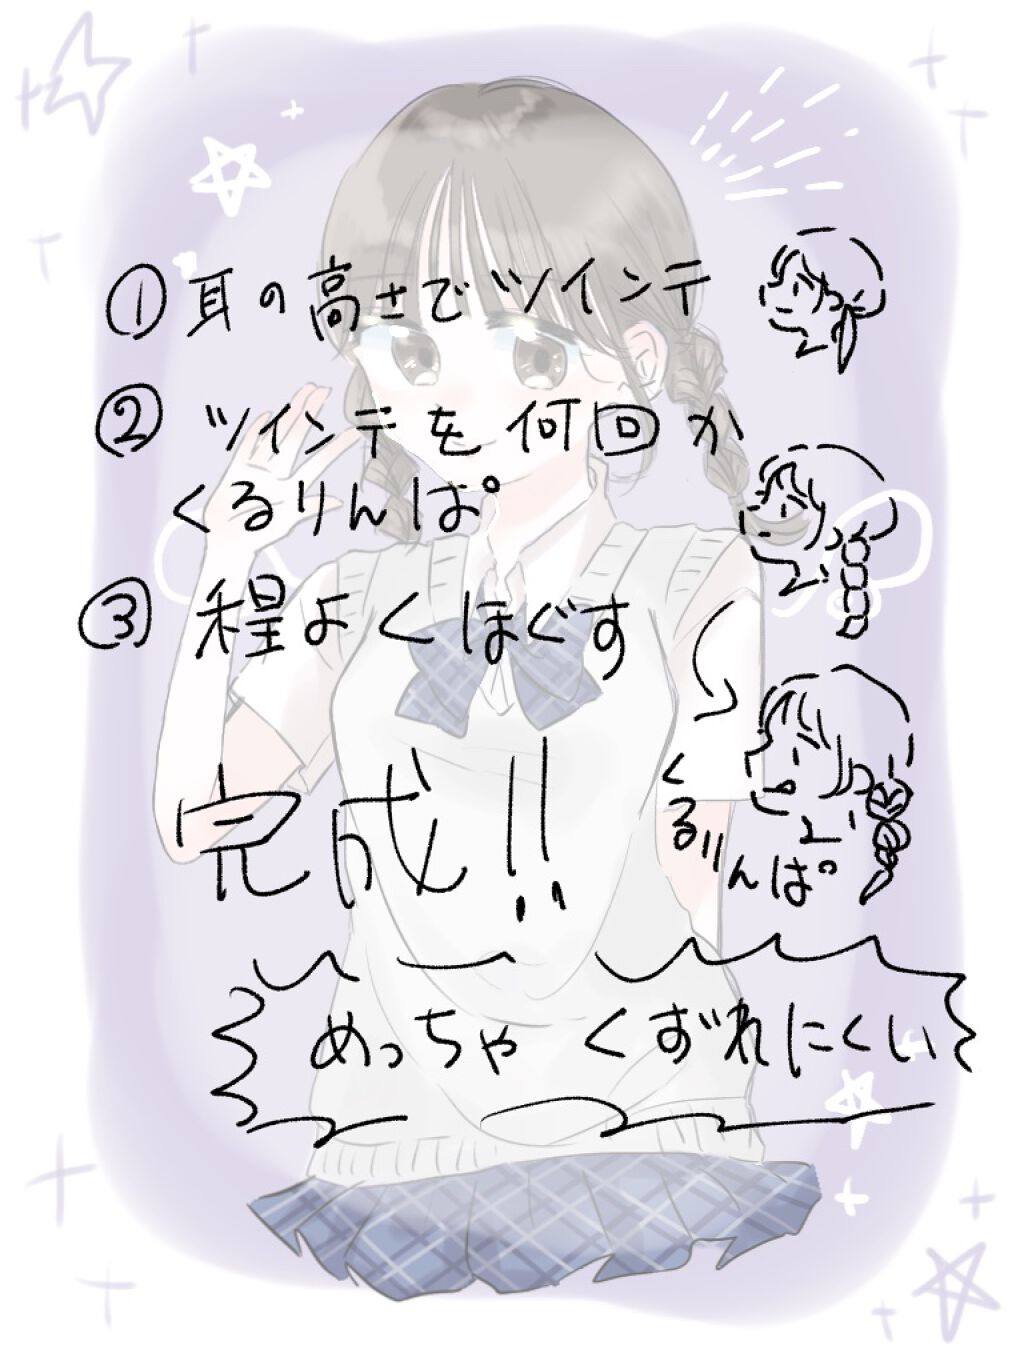 ①耳の高さでツインテ
②ツインテを何回か
くるりんぱ
③程よくほぐす
完成!!
くるりんぱ
めっちゃくずれにくい